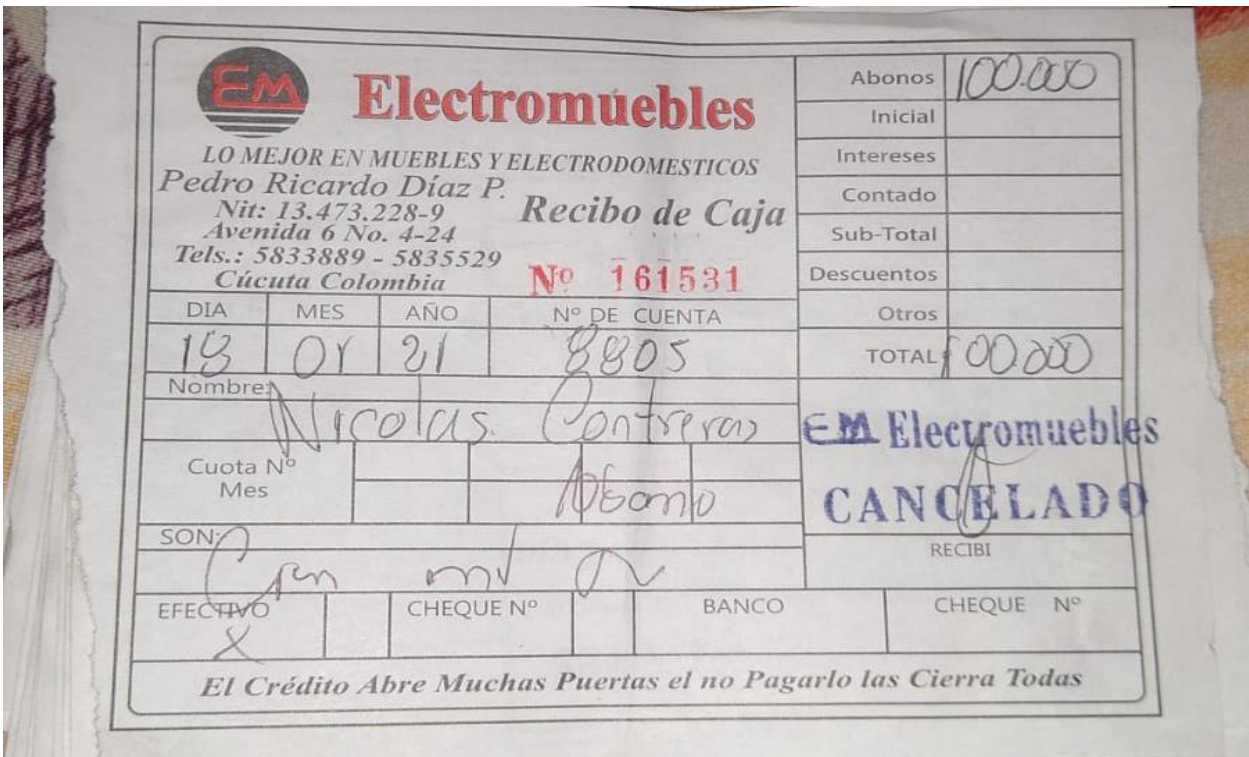 EM
Electromuebles
LO MEJOR EN MUEBLES Y ELECTRODOMESTICOS
Pedro Ricardo Díaz P.
Nit: 13.473.228-9
Avenida 6 No. 4-24
Tels.: 5833889 - 5835529
Cúcuta Colombia
Recibo de Caja
Nº 161531
Abonos 100.000
Inicial
Intereses
Contado
Sub-Total
Descuentos
Otros
TOTAL 100.000
DIA MES AÑO Nº DE CUENTA
21 8805
Nombre: Nicolas Contreras
Cuota Nº
Mes
Abono
EM Electromuebles
CANCELADO
RECIBI
SON:
Cien mil
EFECTIVO CHEQUE Nº BANCO CHEQUE Nº
X
El Crédito Abre Muchas Puertas el no Pagarlo las Cierra Todas